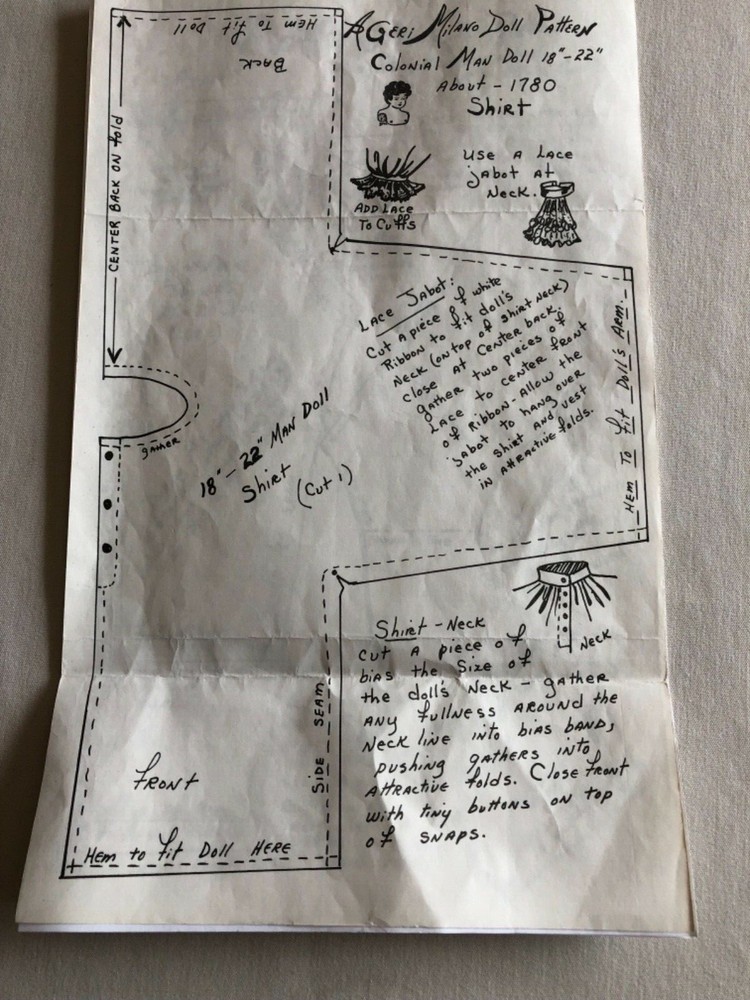 Hem To fit Doll
Back
CENTER BACK ON fold
A Geri Milano Doll Pattern
Colonial Man Doll 18"-22"
About - 1780
Shirt
Use A Lace
jabot At
Neck.
ADD LACE
To Cuffs
Lace Jabot:
Cut A piece of white
Ribbon to fit doll's
Neck (on top of shirt neck)
Close at Center back.
gather two pieces of
Lace to center front
of Ribbon - Allow the
jabot to hang over
the shirt and vest
in Attractive folds.
Hem To fit Doll's Arm.
gather
18"- 22" Man Doll
Shirt
(Cut 1)
Neck
Shirt - Neck
Cut A piece of
bias the size of
the doll's Neck - gather
Any fullness around the
Neck line into bias band,
pushing gathers into
Attractive folds. Close front
with tiny buttons on top
of snaps.
SIDE SEAM
Front
Hem to fit Doll HERE